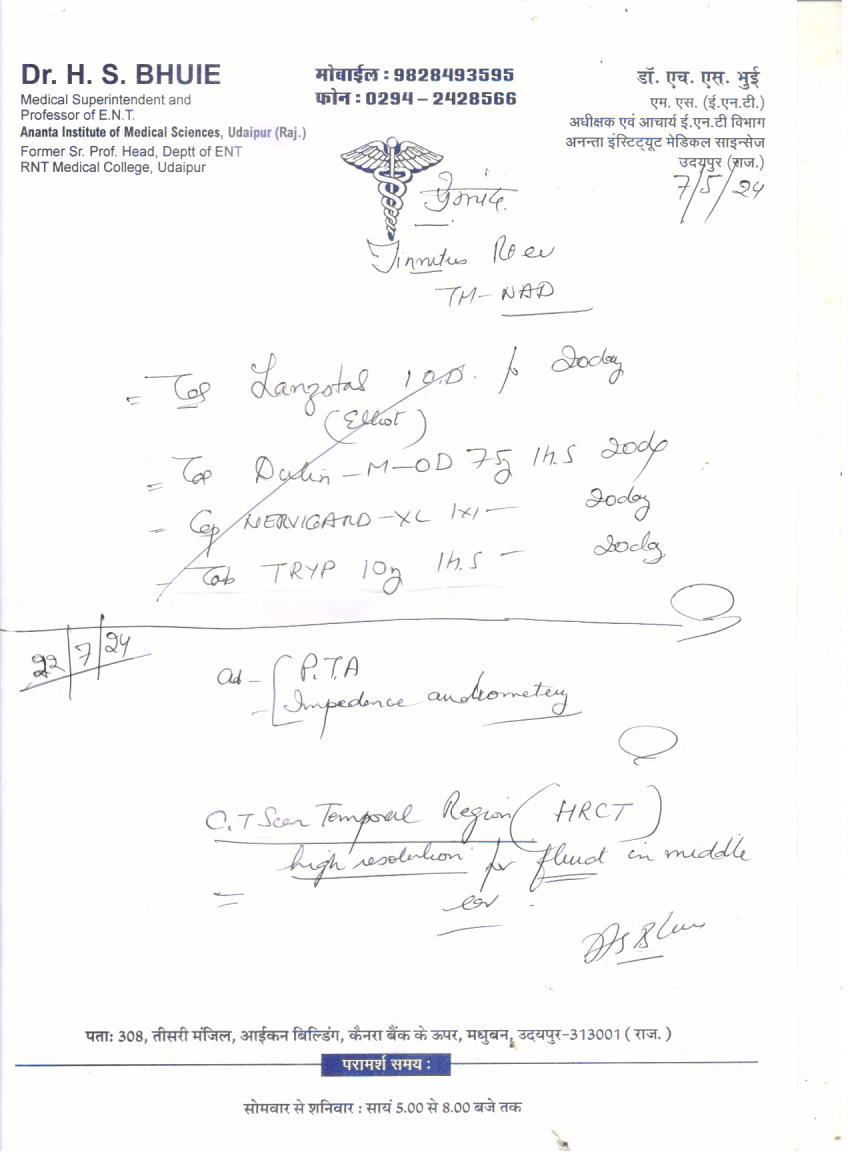 Dr. H. S. BHUIE
Medical Superintendent and
Professor of E.N.T.
Ananta Institute of Medical Sciences, Udaipur (Raj.)
Former Sr. Prof. Head, Deptt of ENT
RNT Medical College, Udaipur
मोबाईल : 9828493595
फोन : 0294 – 2428566
डॉ. एच. एस. भुई
एम. एस. (ई.एन.टी.)
अधीक्षक एवं आचार्य ई.एन.टी विभाग
अनन्ता इंस्टिट्यूट मेडिकल साइन्सेज
उदयपुर (राज.)
7/5/24
Tinnitus
TM - NAD
= Cap 1 O.D. 20day
= Cap - M - OD 75g 1 h.S 20day
- Cap NERVIGARD-XL 1x1 — 20day
- Tab TRYP 10g 1 h.S — 20day
22/7/24
Ad - P.T.A
- Impedence
C.T Scan Temporal Region (HRCT)
high resolution for fluid in middle
= ear
पता: 308, तीसरी मंजिल, आईकन बिल्डिंग, कैनरा बैंक के ऊपर, मधुबन, उदयपुर-313001 ( राज. )
परामर्श समय :
सोमवार से शनिवार : सायं 5.00 से 8.00 बजे तक